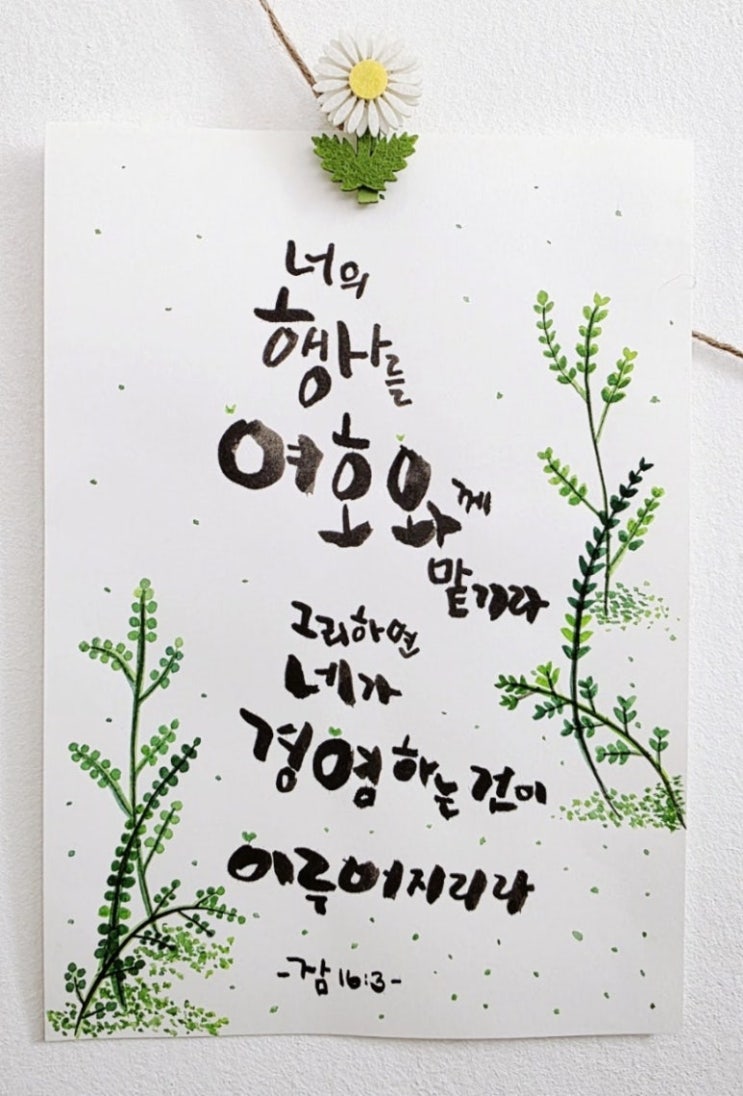 너의
행사를
여호와께
맡기라
그리하면
네가
경영하는 것이
이루어지리라
-잠 16:3-